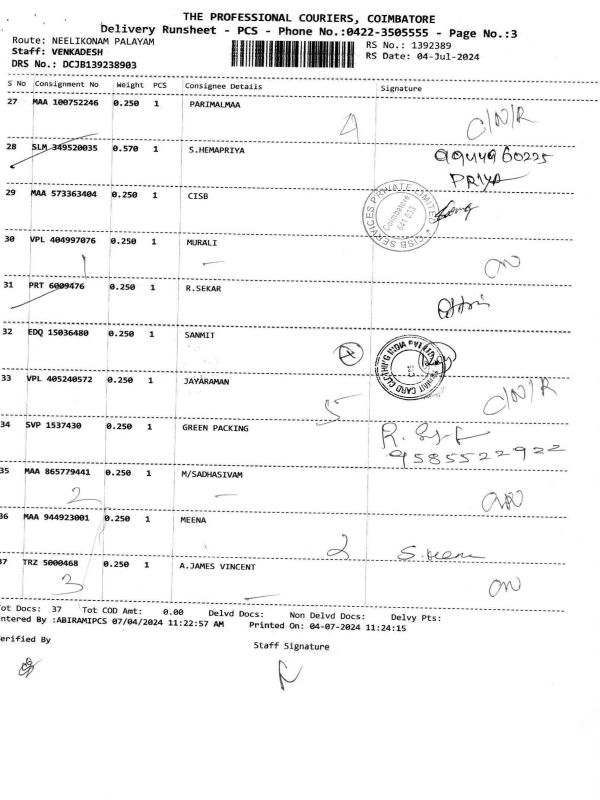 THE PROFESSIONAL COURIERS, COIMBATORE
Delivery Runsheet - PCS - Phone No.:0422-3505555 - Page No.:3
Route: NEELIKONAM PALAYAM RS No.: 1392389
Staff: VENKADESH RS Date: 04-Jul-2024
DRS No.: DCJB139238903
S No Consignment No Weight PCS Consignee Details Signature
27 MAA 100752246 0.250 1 PARIMALMAA
4 C/N/R
28 SLM 349520035 0.570 1 S.HEMAPRIYA
PRIYA
29 MAA 573363404 0.250 1 CISB
CISB SERVICES PRIVATE LIMITED Coimbatore 641 033
30 VPL 404997076 0.250 1 MURALI
31 PRT 6009476 0.250 1 R.SEKAR
32 EDQ 15036480 0.250 1 SANMIT
4
33 VPL 405240572 0.250 1 JAYARAMAN
5 C/N/R
34 SVP 1537430 0.250 1 GREEN PACKING
9585522922
35 MAA 865779441 0.250 1 M/SADHASIVAM
2
36 MAA 944923001 0.250 1 MEENA
2
37 TRZ 5000468 0.250 1 A.JAMES VINCENT
3
Tot Docs: 37 Tot COD Amt: 0.00 Delvd Docs: Non Delvd Docs: Delvy Pts:
Entered By :ABIRAMIPCS 07/04/2024 11:22:57 AM Printed On: 04-07-2024 11:24:15
Verified By
Staff Signature